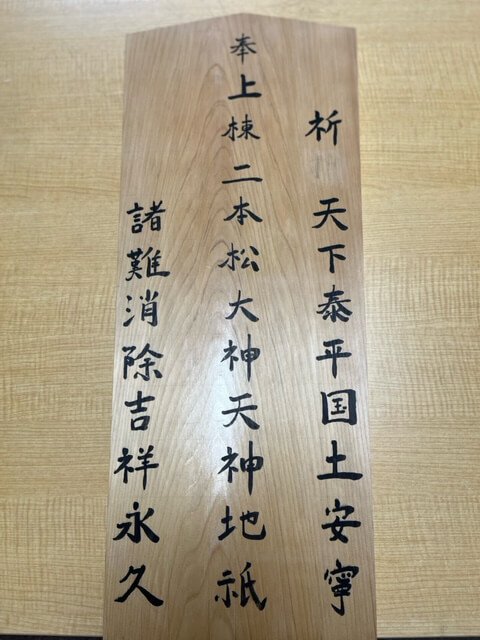 祈 天下泰平国土安寧
奉上棟二本松大神天神地祇
諸難消除吉祥永久